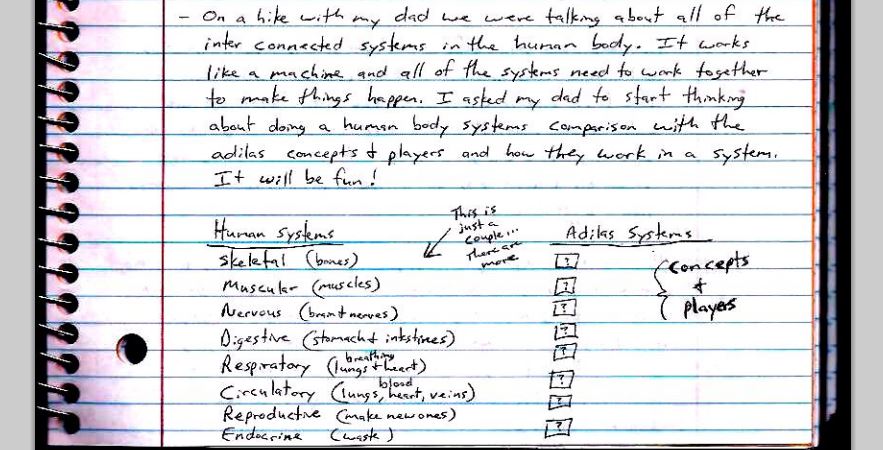 - On a hike with my dad we were talking about all of the
inter connected systems in the human body. It works
like a machine and all of the systems need to work together
to make things happen. I asked my dad to start thinking
about doing a human body systems comparison with the
adilas concepts & players and how they work in a system.
It will be fun!
This is
just a
couple...
there are
more
Human Systems
Adilas Systems
Skeletal (bones) ?
Muscular (muscles) ?
Nervous (brain & nerves) ?
Digestive (stomach & intestines) ?
Respiratory (breathing lungs & heart) ?
Circulatory (blood lungs, heart, veins) ?
Reproductive (make new ones) ?
Endocrine (waste) ?
{ concepts
&
players